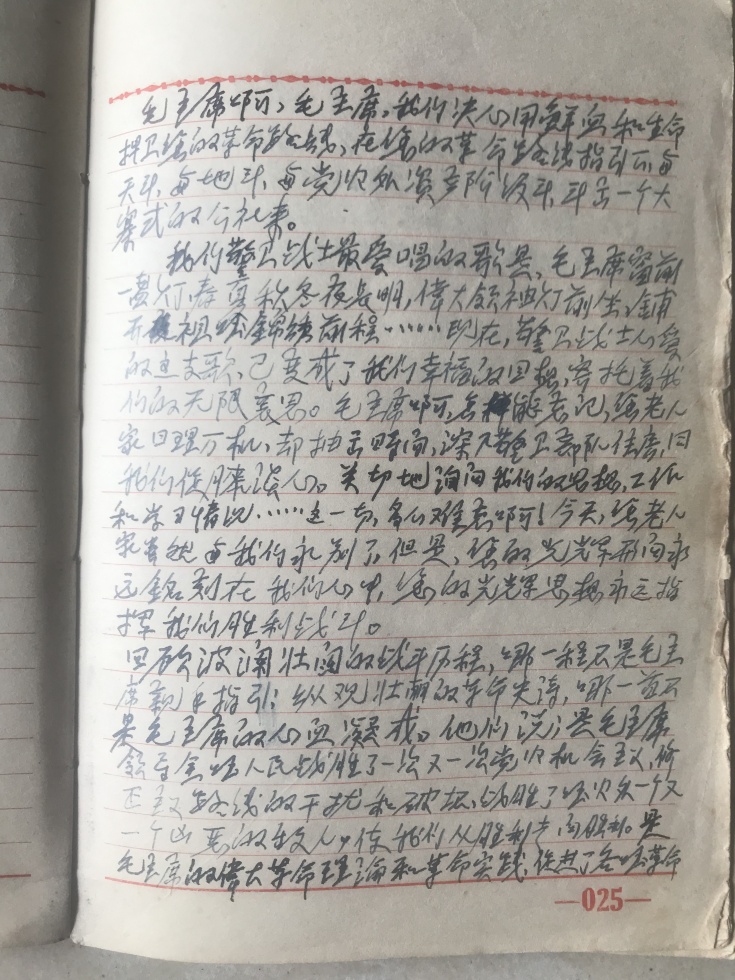 毛主席啊，毛主席，我们决心用鲜血和生命
捍卫您的革命路线，在您的革命路线指引下，与
天斗，与地斗，与党内外资产阶级斗，斗出一个大
寨式的公社来。
我们警卫战士最爱唱的歌是，毛主席窗前
一盏灯，春夏秋冬夜长明，伟大领袖灯前坐，铺
开祖国锦绣前程……现在，警卫战士心爱
的这支歌，已变成了我们幸福的回想，寄托着我
们的无限哀思。毛主席啊，怎能忘记，您老人
家日理万机，却抽出时间，深入警卫部队住房，同
我们促膝谈心。关切地询问我们的思想，工作
和学习情况……这一切，多么难忘啊！今天，您老人
家虽然与我们永别了，但是，您的光辉形向永
远铭刻在我们心中，您的光辉思想永远指
挥我们胜利战斗。
回顾波澜壮阔的战斗历程，哪一程不是毛主
席亲手指引；纵观壮丽的革命史诗，哪一首不
是毛主席的心血凝成。他们说；是毛主席
领导全国人民战胜了一次又一次党内机会主义，修
正主义路线的干扰和破坏，战胜了国内外一个又
一个凶恶的敌人，使我们从胜利走向胜利。是
毛主席的伟大革命理论和革命实践，促进了各国革命
—025—